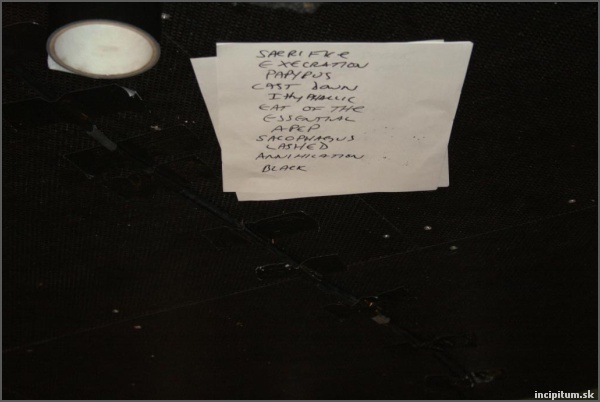 SACRIFICE
EXECRATION
PAPYRUS
CAST DOWN
ITHYPHALLIC
EAT OF THE
ESSENTIAL
SACOPHAGUS
LASHED
ANNIHILATION
BLACK
incipitum.sk